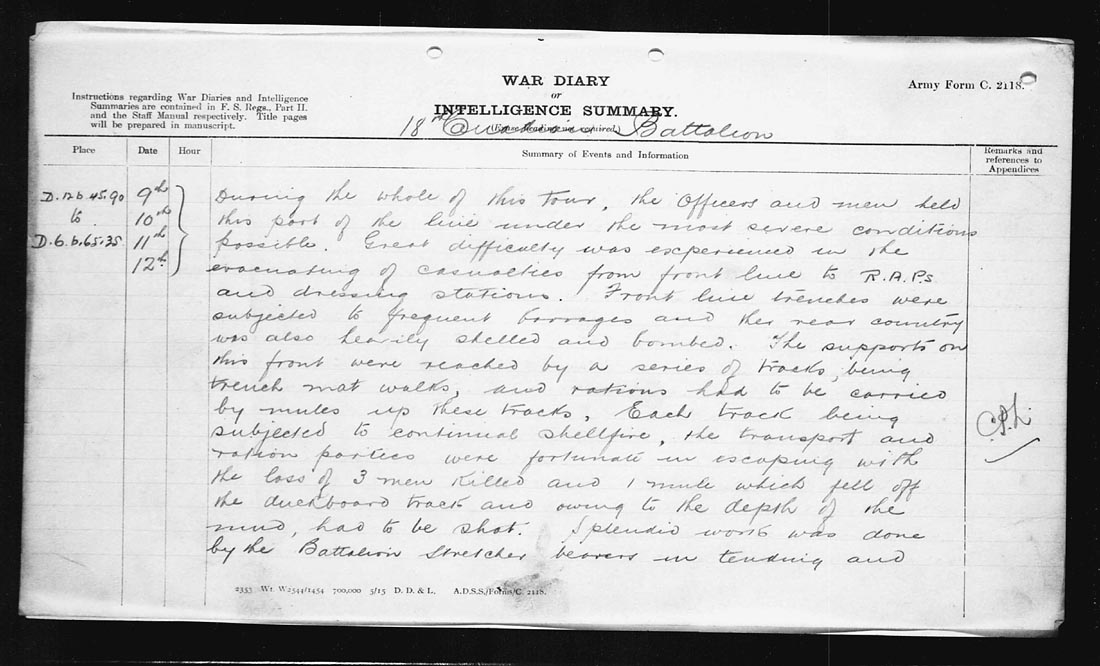 WAR DIARY
or
INTELLIGENCE SUMMARY.
(Erase heading not required.)
Army Form C. 2118.
Instructions regarding War Diaries and Intelligence
Summaries are contained in F. S. Regs., Part II.
and the Staff Manual respectively. Title pages
will be prepared in manuscript.
18th Canadian Battalion
Place Date Hour Summary of Events and Information Remarks and references to Appendices
D.12.b.45.90 9th During the whole of this tour, the Officers and men held
to 10th this part of the line under the most severe conditions
D.6.b.65.35 11th possible. Great difficulty was experienced in the
12th evacuating of casualties from front line to R.A.Ps
and dressing stations. Front line trenches were
subjected to frequent barrages and the rear country
was also heavily shelled and bombed. The supports on
this front were reached by a series of tracks, being
trench mat walks, and rations had to be carried
by mules up these tracks. Each track being
subjected to continual shellfire, the transport and
ration parties were fortunate in escaping with
the loss of 3 men killed and 1 mule which fell off
the duckboard track and owing to the depth of the
mud, had to be shot. Splendid work was done
by the Battalion Stretcher bearers in tending and
2353 Wt. W2544/1454 700,000 5/15 D. D. & L. A.D.S.S./Forms/C. 2118.